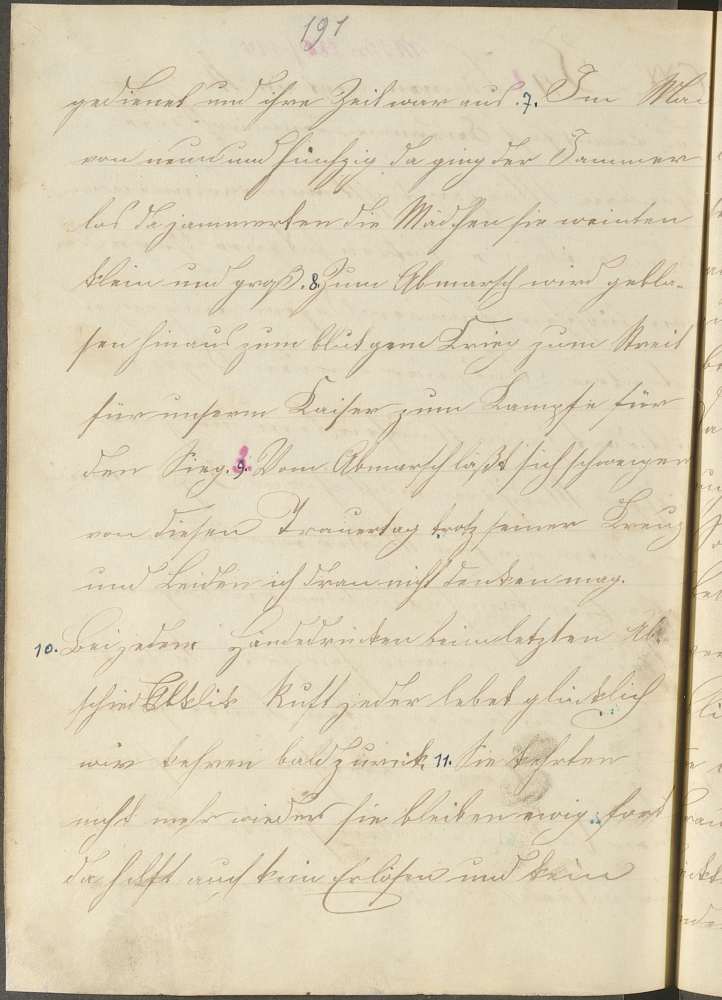 191
gedienet und ihre Zeit war aus. 7. Im Mai
von neun und fünfzig da ging der Jammer
los da jammerten die Mädchen sie weinten
klein und groß. 8. Zum Abmarsch wird gebla-
sen hinaus zum blutgem Krieg zum Streit
für unserm Kaiser zum Kampfe für
den Sieg. 9. Vom Abmarsch läßt sich schweigen
von diesen Trauertag trotz seiner Kreuz
und Leiden ich dran nicht denken mag.
10. Bei jedem Händedrücken beim letzten Ab-
schied Ruft jeder lebet glücklich
wir kehren bald zurück. 11. Sie kehrten
nicht mehr wieder sie bleiben ewig fort
da hilft auch kein Erlösen und kein